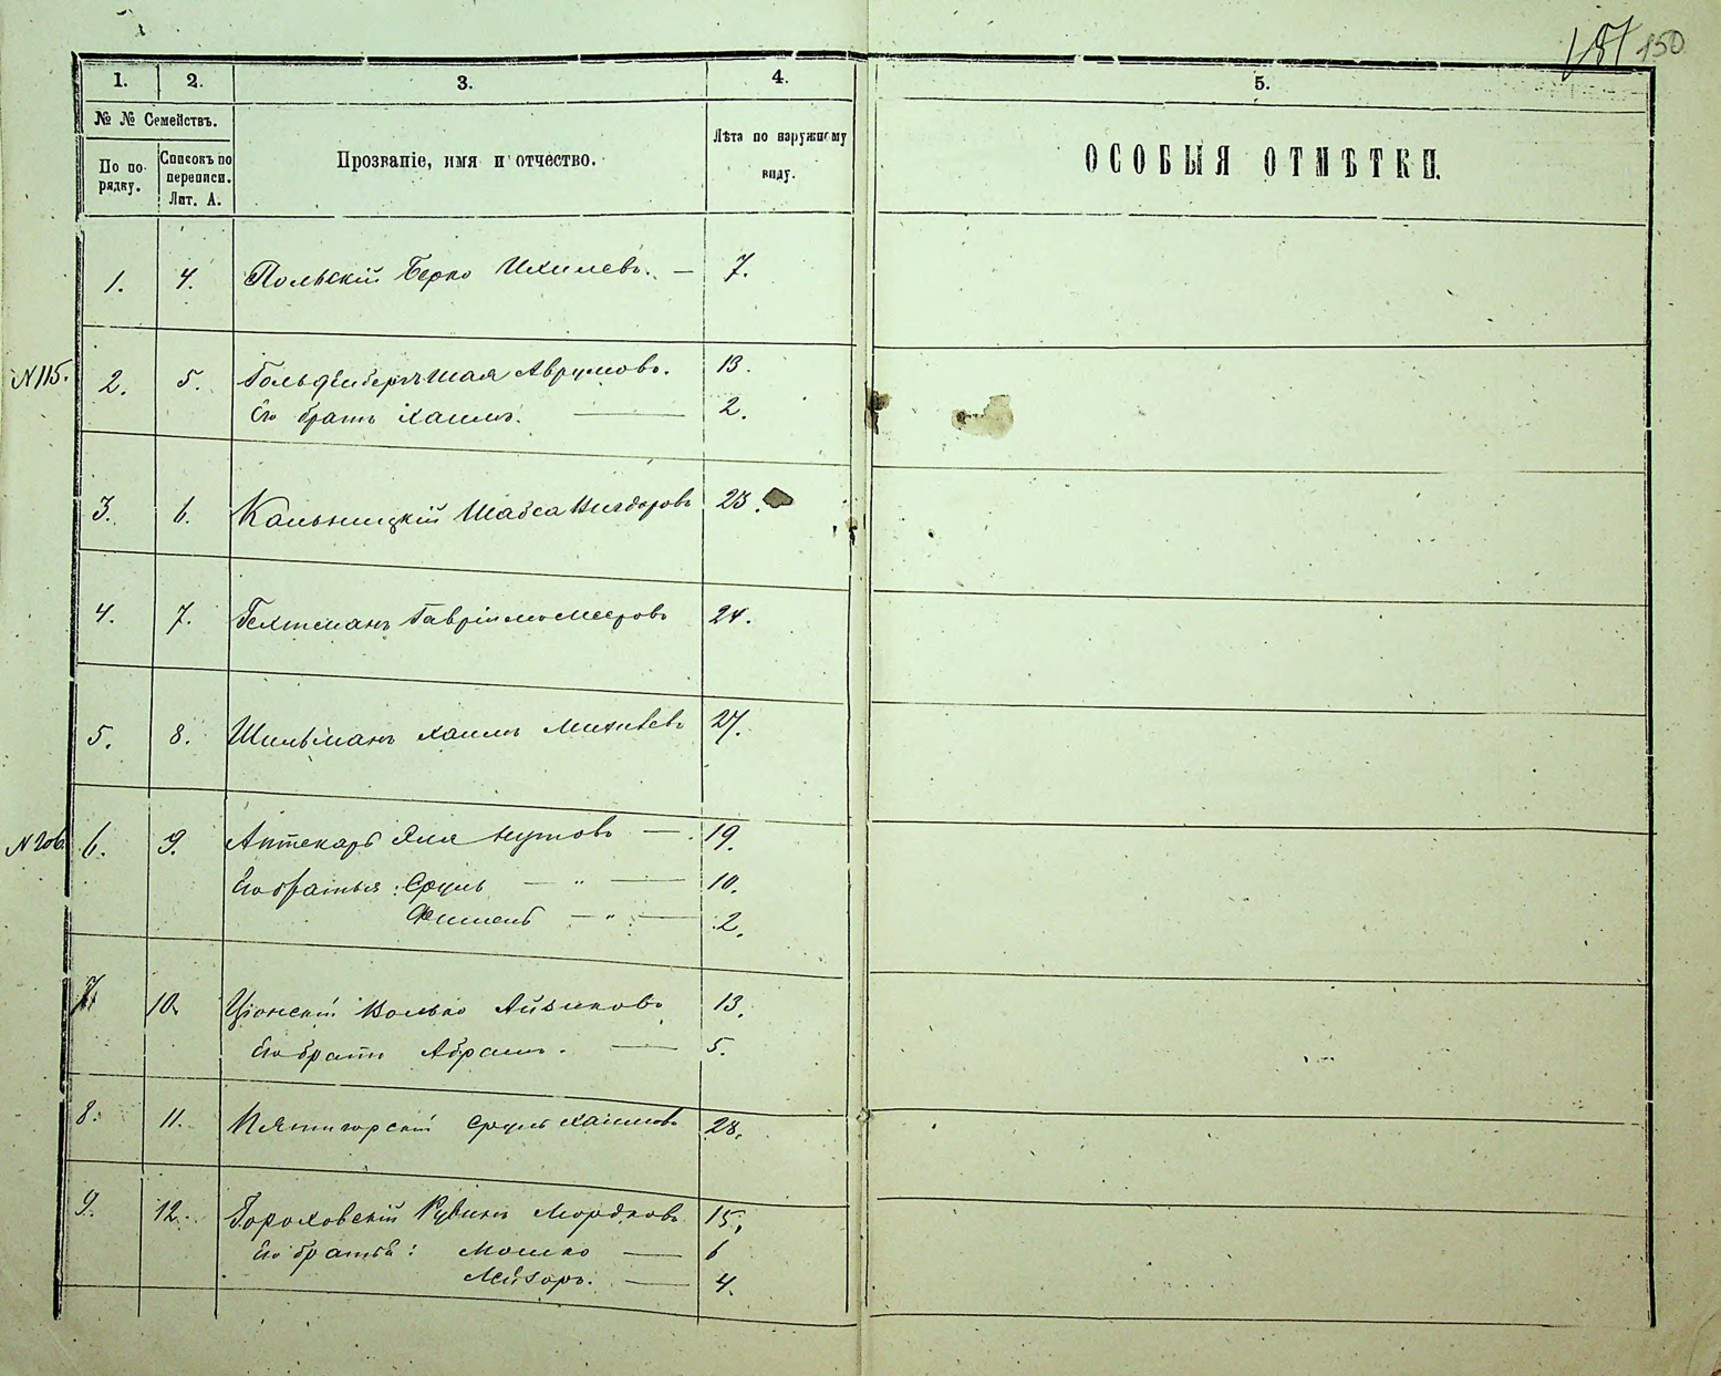 151 150
1. 2. 3. 4. 5.
№ № Семействъ.
По порядку. Списокъ по переписи. Лит. А. Прозваніе, имя и отчество. Лѣта по наружному виду. ОСОБЫЯ ОТМѢТКИ.
1. 4. Польскій Берко Ихилевъ. — 7.
N 115. 2. 5. Гольденбергъ Шая Аврумовъ. 13.
Его братъ Хаимъ. — 2.
3. 6. Кальницкій Шабса Вигдоровъ 23.
4. 7. Гехтманъ Гавріилъ Мееровъ 24.
5. 8. Шильманъ Хаимъ 27.
N 206. 6. 9. Аптекарь Эля Нутовъ — 19.
Его братья: Сруль — " — 10.
Фишель — " — 2.
7. 10. Ціонскій Волько Айзиковъ 13.
Его братъ Абрамъ. — 5.
8. 11. Пятигорскій Сруль Хаимовъ 28.
9. 12. Гороховскій Рувинъ Мордковъ 15.
Его братья: Мошко — 6
Лейзоръ. — 4.